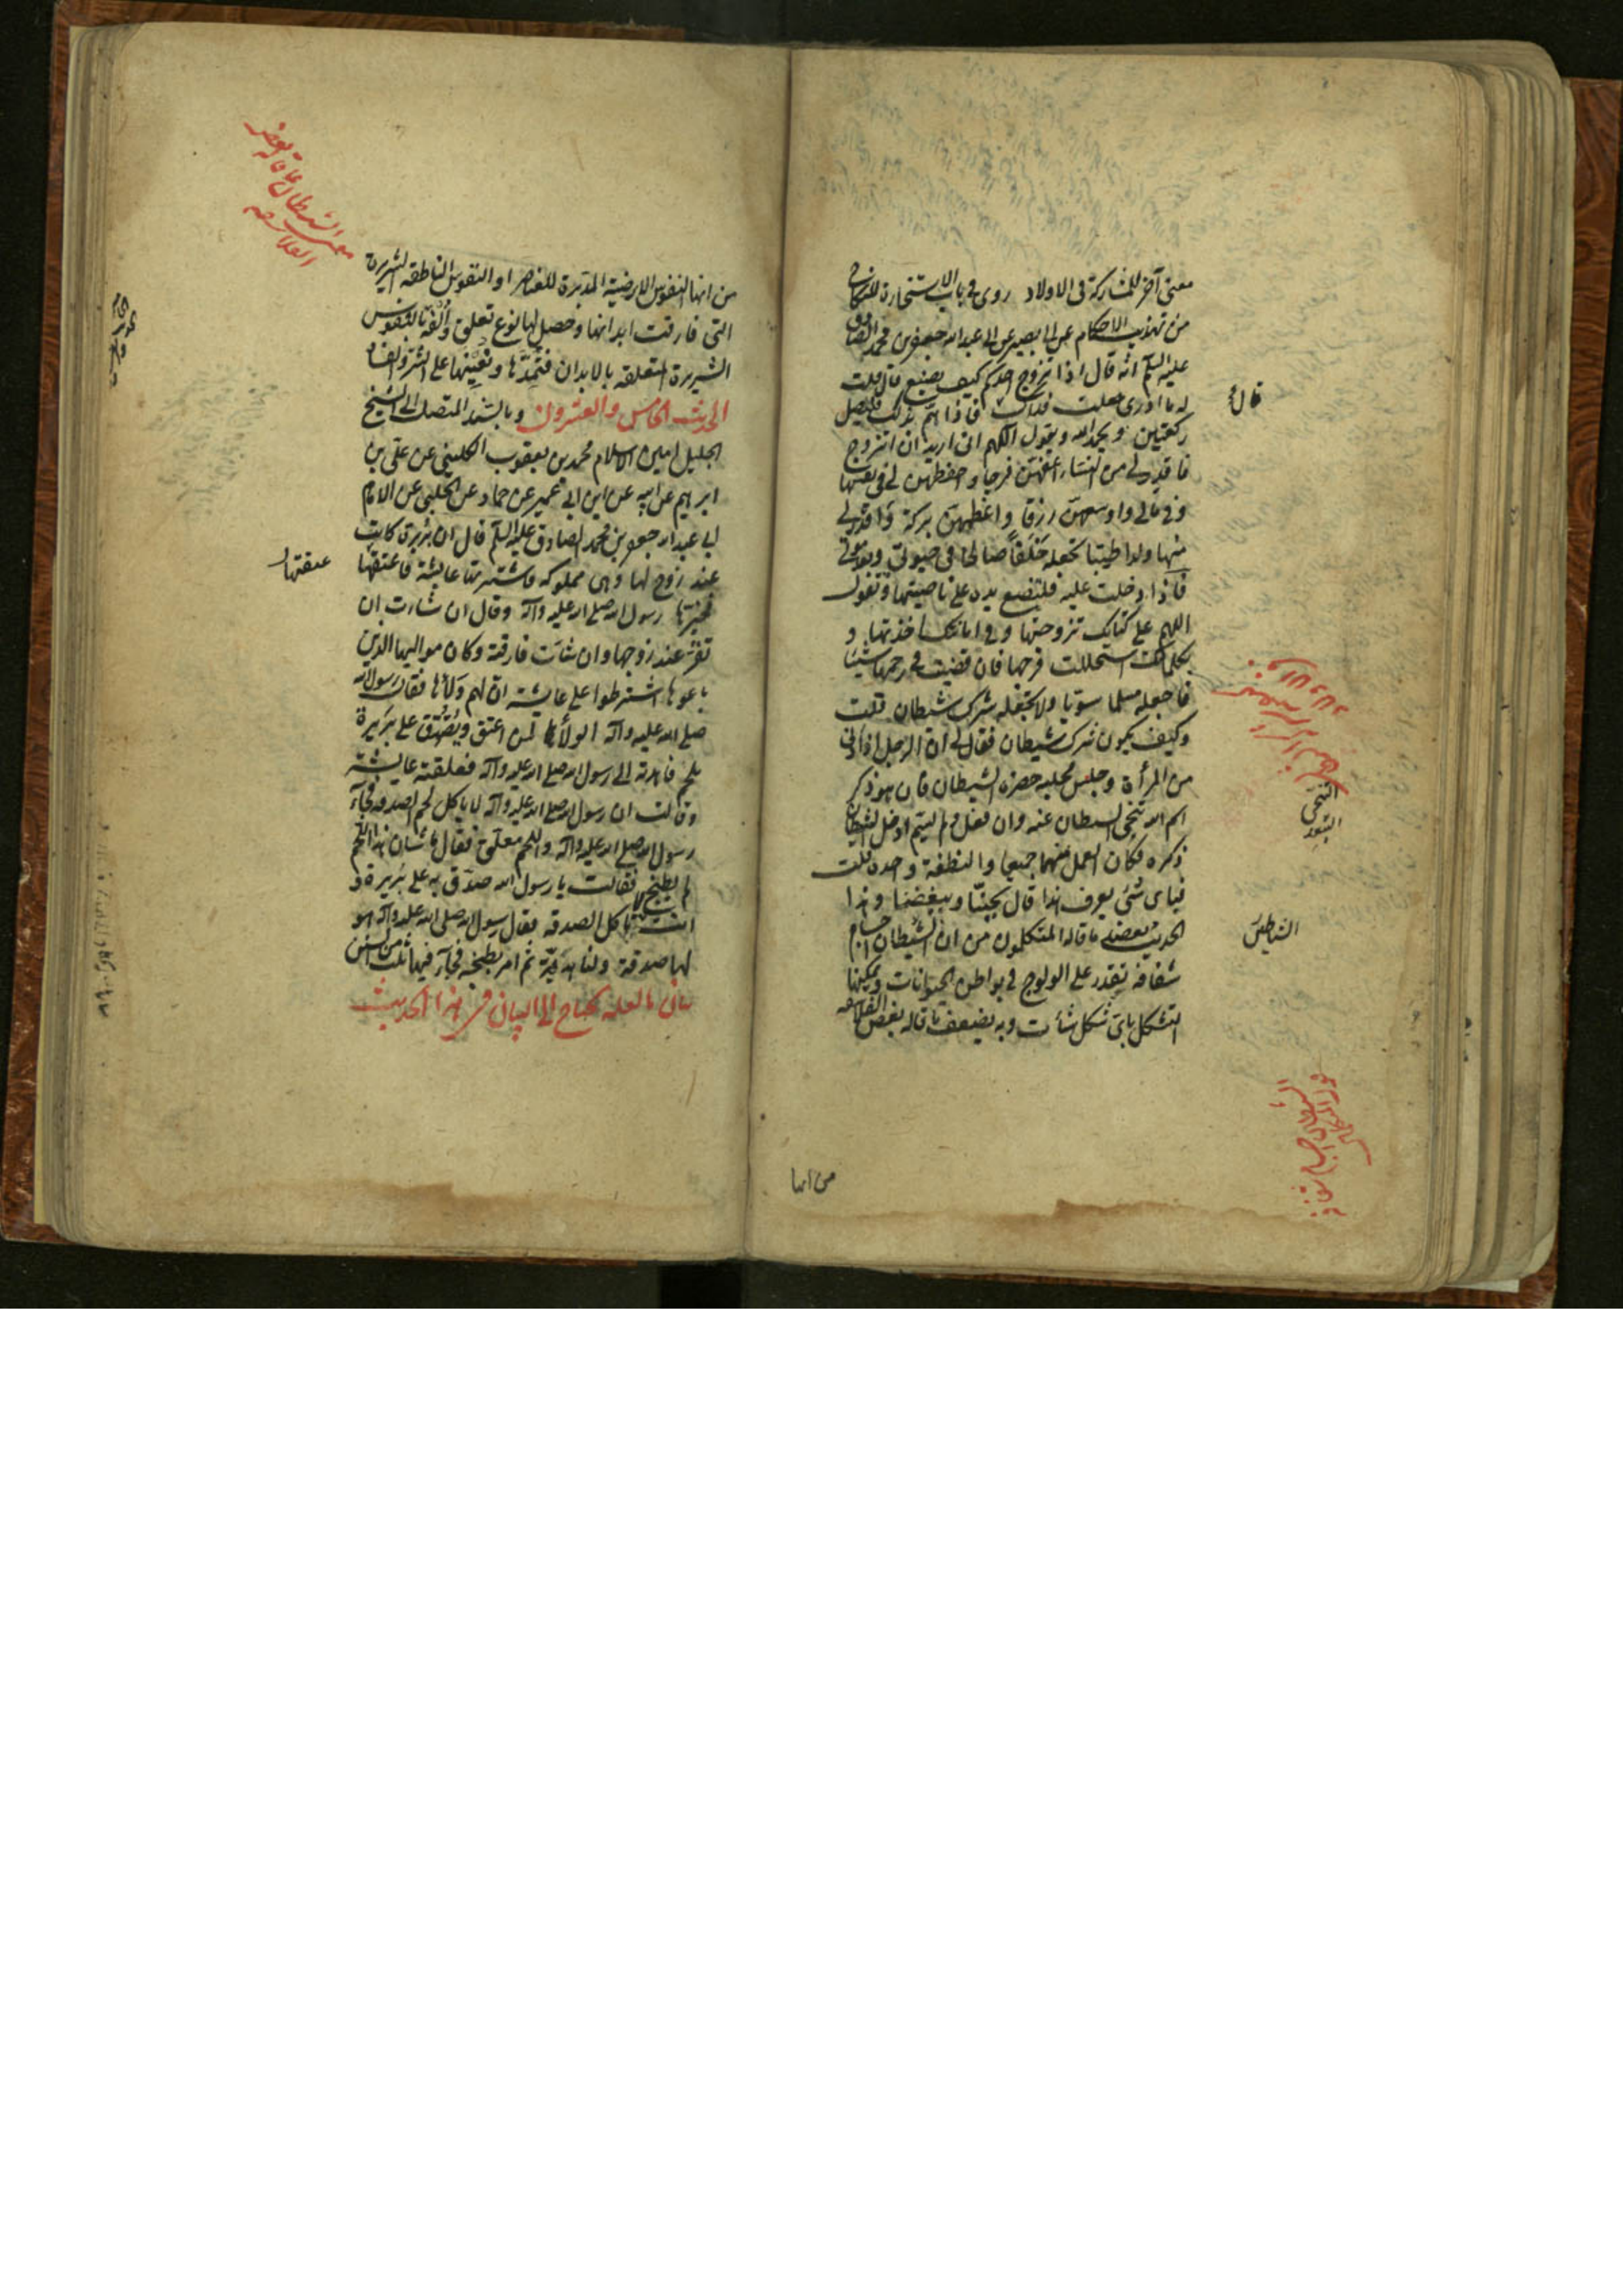 معنى آخر للمشاركة فى الاولاد روى فى باب الاستخارة للنكاح
من تهذيب الاحكام عن ابى بصير عن ابى عبد الله جعفر بن محمد الصادق
عليه السلم انه قال اذا تزوج احدكم كيف يصنع قال قلت
له ما ادرى جعلت فداك فاذا هم بذلك فليصل
ركعتين و يحمد الله ويقول اللهم انى اريد ان اتزوج
فاقدر لى من النساء اعفهن فرجا واحفظهن لى فى نفسها
وفى مالى واوسعهن رزقا واعظمهن بركة واقدر لى
منها ولدا طيبا تجعله خلفا صالحا فى حيوتى وبعد موتى
فاذا دخلت عليه فليضع يده على ناصيتها وتقول
اللهم على كتابك تزوجتها وفى امانتك اخذتها و
بكلماتك استحللت فرجها فان قضيت فى رحمها شيئا
فاجعله مسلما سويا ولا تجعله شرك شيطان قلت
وكيف يكون شرك شيطان فقال لى ان الرجل اذا دنى
من المرأة وجلس مجلسه حضره الشيطان فان هو ذكر
اسم الله تنحى الشيطان عنه وان فعل ولم يسم ادخل الشيطان
ذكره فكان العمل منهما جميعا والنطفة واحدة قلت
فباى شئ يعرف هذا قال بحبنا وببغضنا وهذا
الحديث يعضد ما قاله المتكلمون من ان الشيطان اجسام
شفافة تقدر على الولوج فى بواطن الحيوانات ويمكنها
التشكل باى شكل شأت وبه يضعف ما قاله بعض الفلاسفة
قال
التنحى
التبعد
الشياطين
من انها
من انها النفوس الارضية المدبرة للعناصر او النفوس الناطقه الشريرة
التى فارقت ابدانها وحصل لها نوع تعلق وألفة بالنفوس
الشريرة المتعلقه بالابدان فتمدها وتعينها على الشر والفساد
الحديث الخامس والعشرون وبالسند المتصل الى الشيخ
الجليل امين الاسلام محمد بن يعقوب الكلينى عن على بن
ابرهيم عن ابيه عن ابن ابى عمير عن حماد عن الحلبى عن الامام
ابى عبد الله جعفر بن محمد الصادق عليه السلم قال ان بريرة كانت
عند زوج لها وهى مملوكه فاشترتها عايشة فاعتقها
فخيرها رسول الله صلى الله عليه وآله وقال ان شاءت ان
تقر عند زوجها وان شأت فارقته وكان مواليها الذين
باعوها اشترطوا على عايشه ان لهم ولاءها فقال رسول الله
صلى الله عليه وآله الولاء لمن اعتق وتصدق على بريرة
بلحم فاهدته الى رسول الله صلى الله عليه وآله فعلقته عايشة
وقالت ان رسول الله صلى الله عليه وآله لا ياكل لحم الصدقه فجاء
رسول الله صلى الله عليه وآله واللحم معلق فقال ما شأن هذا اللحم
لم يطبخ فقالت يا رسول الله صدق به على بريرة و
انت لا تاكل الصدقه فقال رسول الله صلى الله عليه وآله هو
لها صدقة ولنا هدية ثم امر بطبخه فجآء فيها ثلث من السنن
بيان ما لعله يحتاج الى البيان فى هذا الحديث
معنى الشيطان على ما قاله بعض
الفلاسفه